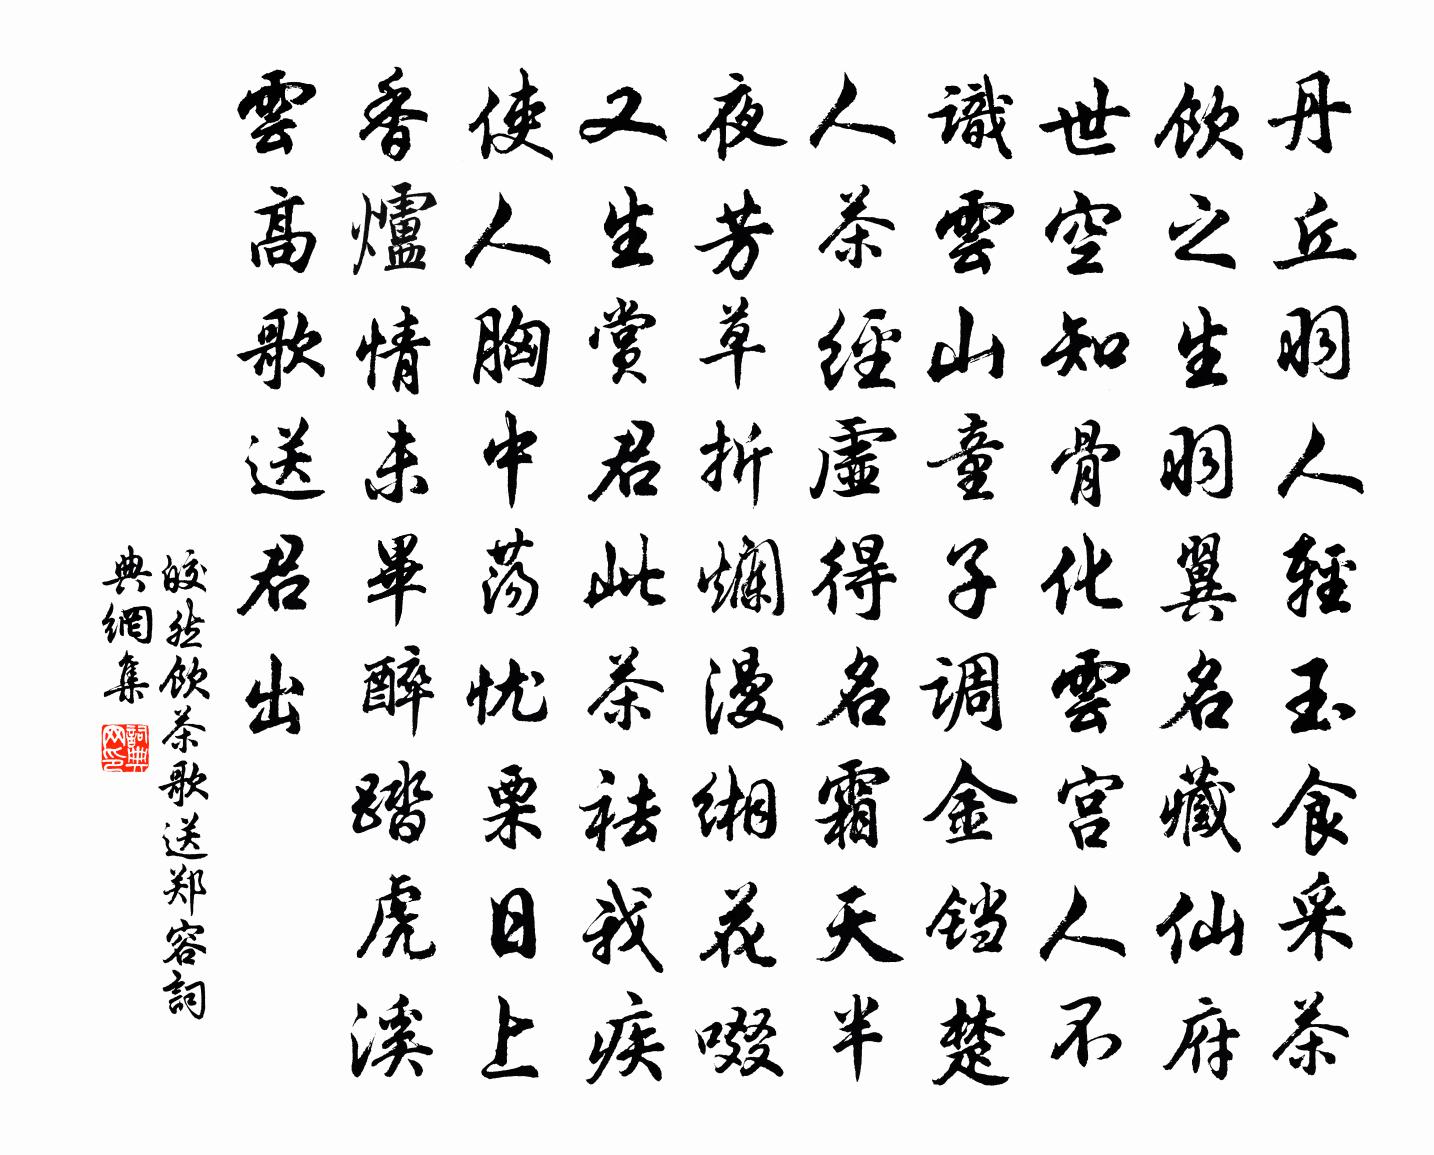 丹丘羽人輕玉食采茶
飲之生羽翼名藏仙府
世空知骨化雲宫人不
識雲山童子调金铛楚
人茶經虛得名霜天半
夜芳草折爛漫缃花啜
又生賞君此茶祛我疾
使人胸中荡忧栗日上
香爐情未畢醉踏虎溪
雲高歌送君出
皎然飲茶歌送郑容詞
典網集
詞典网印